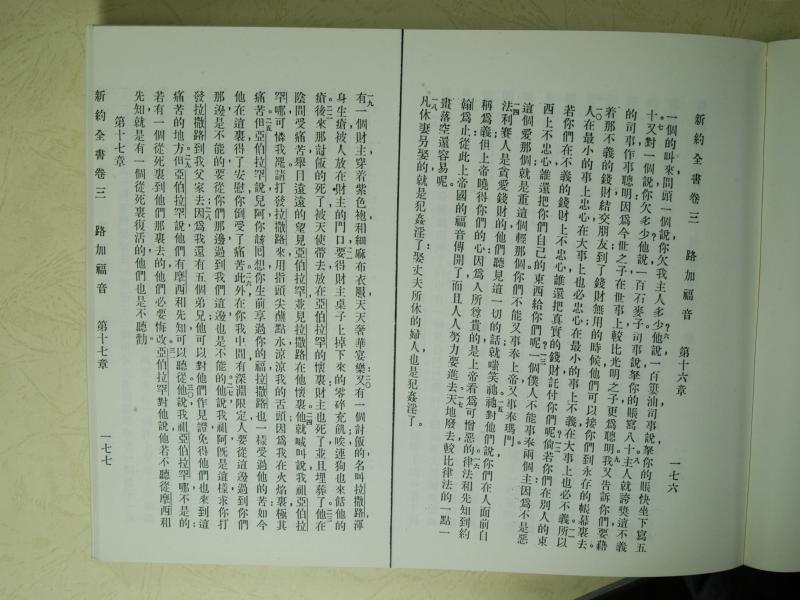 新約全書卷三　路加福音　第十六章　一七六
一個的叫來問頭一個說、你欠我主人多少。他說、一百簍油。司事說、拏你的賬快坐下寫五
十。又對一個說、你欠多少。他說、一百石麥子。司事說、拏你的賬寫八十。主人就誇奬這不義
的司事作事聰明。因爲今世之子、在世事上、較比光明之子更爲聰明。我又告訴你們、要藉
着那不義的錢財結交朋友。到了錢財無用的時候、他們可以接你們到永存的帳幕裏去。
人在最小的事上忠心、在大事上也必忠心。在最小的事上不義、在大事上也必不義。所以
若你們在不義的錢財上不忠心、誰還把真實的錢財託付你們呢。倘若你們在別人的東
西上不忠心、誰還把你們自己的東西給你們呢。一個僕人不能事奉兩個主。因爲不是惡
這個愛那個、就是重這個輕那個。你們不能又事奉上帝、又事奉瑪門。
法利賽人是貪愛錢財的、他們聽見這一切的話、就嗤笑祂。祂對他們說、你們在人面前自
稱爲義。但上帝曉得你們的心。因爲人所尊貴的、是上帝看爲可憎惡的。律法和先知到約
翰爲止。從此上帝國的福音傳開了、而且人人努力要進去。天地廢去、較比律法的一點一
畫落空還容易呢。
凡休妻另娶的、就是犯姦淫了。娶丈夫所休的婦人、也是犯姦淫了。
有一個財主、穿着紫色袍和細麻布衣服、天天奢華宴樂。又有一個討飯的、名叫拉撒路、渾
身生瘡、被人放在財主的門口、要得財主桌子上掉下來的零碎充飢。唉、連狗也來餂他的
瘡。後來那討飯的死了、被天使帶去放在亞伯拉罕的懷裏。財主也死了、並且埋葬了。他在
陰間受痛苦、舉目遠遠的望見亞伯拉罕、並見拉撒路在他懷裏。他就喊叫說、我祖亞伯拉
罕哪、可憐我罷。請打發拉撒路來、用指頭尖蘸點水、涼涼我的舌頭。因爲我在火焰裏、極其
痛苦。但亞伯拉罕說、兒阿、你該回想你生前享過你的福、拉撒路也一樣受過他的苦。如今
他在這裏得了安慰、你倒受了痛苦。此外在你我中間、有深淵限定、人要從這邊過到你們
那邊、是不能的、要從你們那邊過到我們這邊、也是不能的。他說、我祖阿、既是這樣、求你打
發拉撒路到我父家去。因爲我還有五個弟兄、他可以對他們作見證、免得他們也來到這
痛苦的地方。但亞伯拉罕說、他們有摩西和先知、可以聽從。他說、我祖亞伯拉罕哪、不是的。
若有一個從死裏到他們那裏去的、他們必要悔改。亞伯拉罕對他說、他若不聽從摩西和
先知、就是有一個從死裏復活的、他們也是不聽勸。
第十七章
新約全書卷三　路加福音　第十七章　一七七